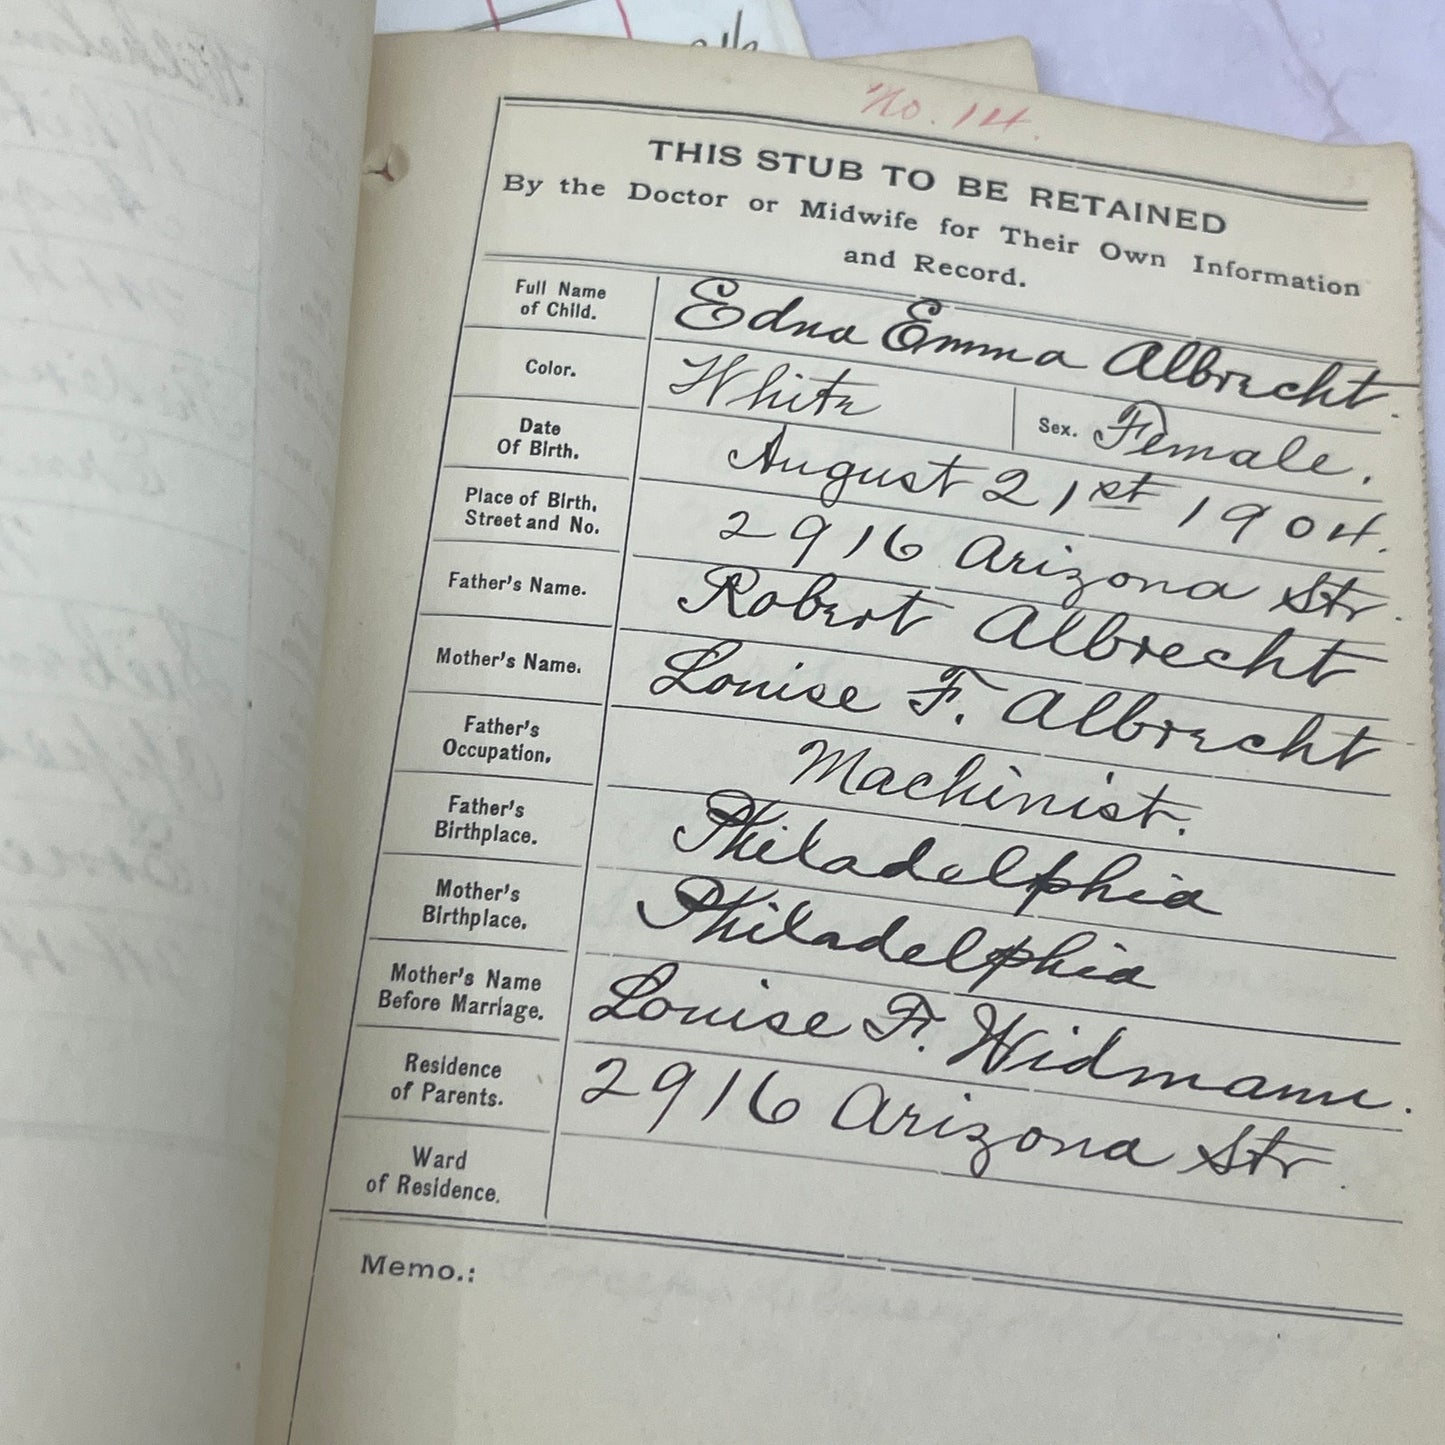 No. 14.
THIS STUB TO BE RETAINED
By the Doctor or Midwife for Their Own Information
and Record.
Full Name
of Child.
Edna Emma Albrecht.
Color.
White
Sex.
Female.
Date
Of Birth.
August 21st 1904.
Place of Birth,
Street and No.
2916 Arizona Str.
Father's Name.
Robert Albrecht
Mother's Name.
Louise F. Albrecht
Father's
Occupation.
Machinist.
Father's
Birthplace.
Philadelphia
Mother's
Birthplace.
Philadelphia
Mother's Name
Before Marriage.
Louise F. Widmann.
Residence
of Parents.
2916 Arizona Str.
Ward
of Residence.
Memo.: